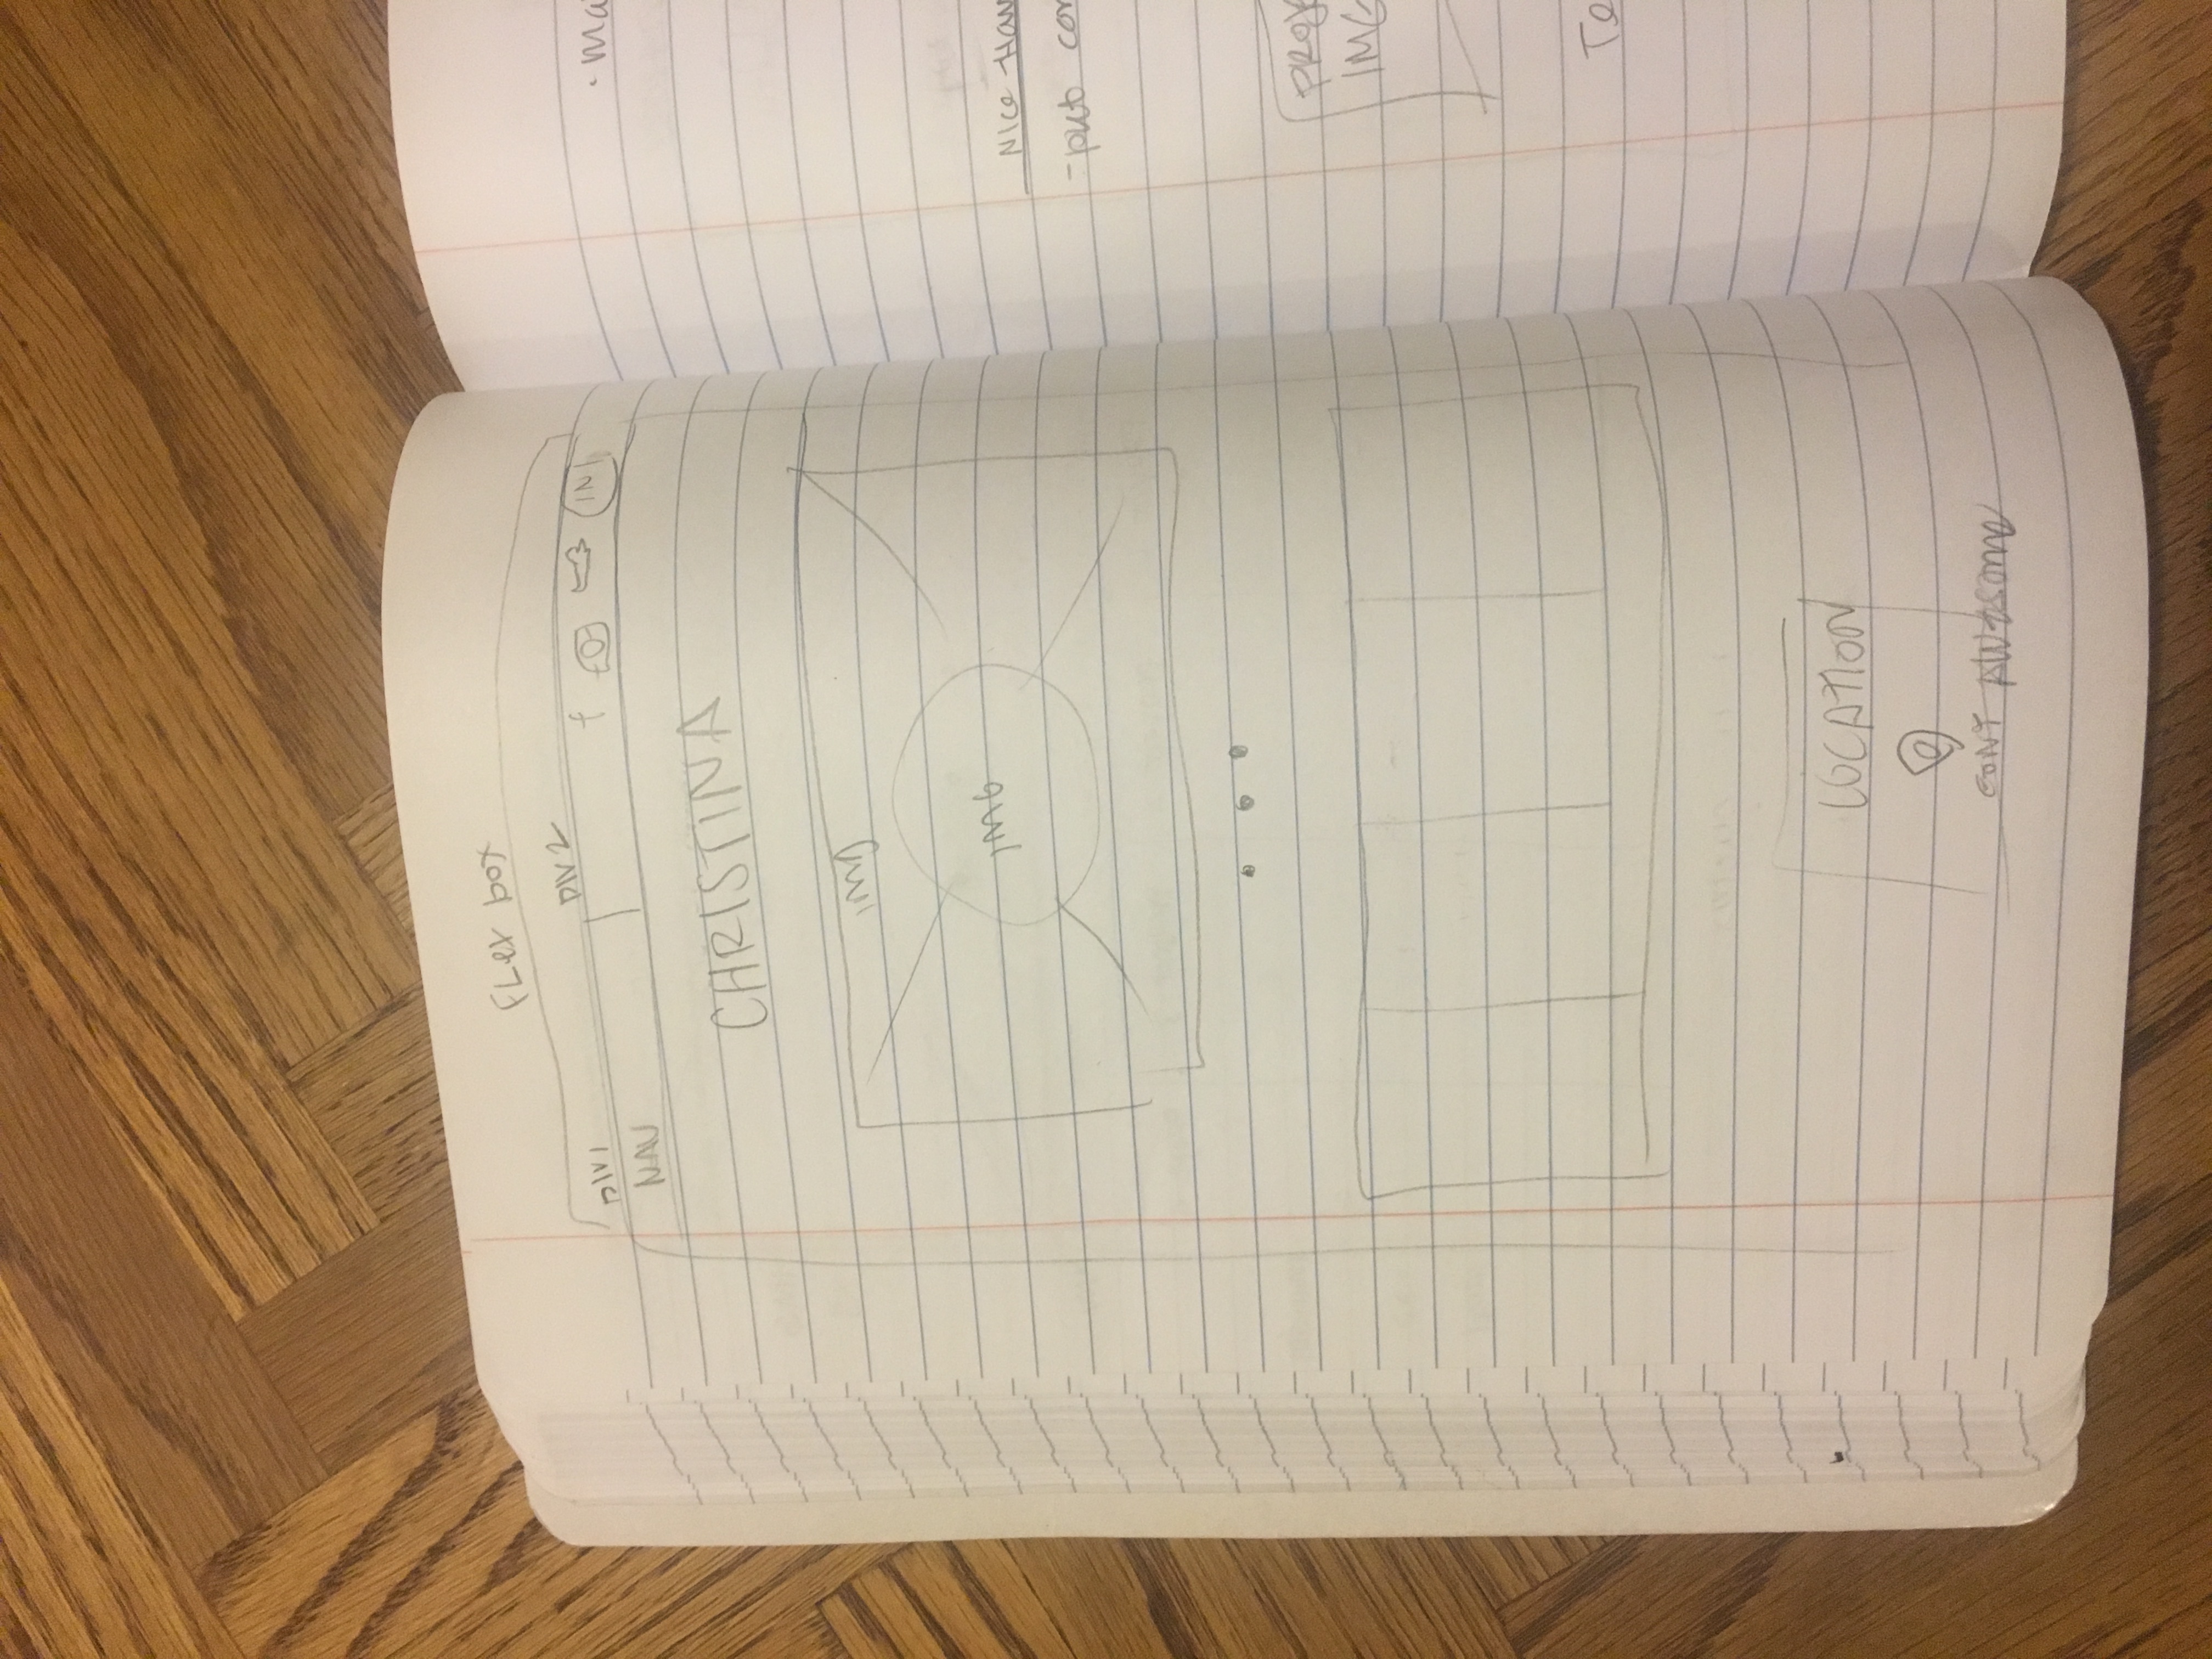 FLex box
DIV1 DIV2
NAV f IN
CHRISTINA
img
IMG
LOCATION
FONT AWESOME
Nice-Hav
-put con
PROJE
IMG
Te